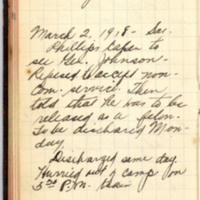 March 2, 1918 - Sat.
Phillips taken to
see Gel. Johnson.
Refused to accept non-
Com. service. Then
told that he was to be
released as a
To be discharged Mon-
day.
Discharged same day.
Hurried out of camp on
5:00 P.M. train